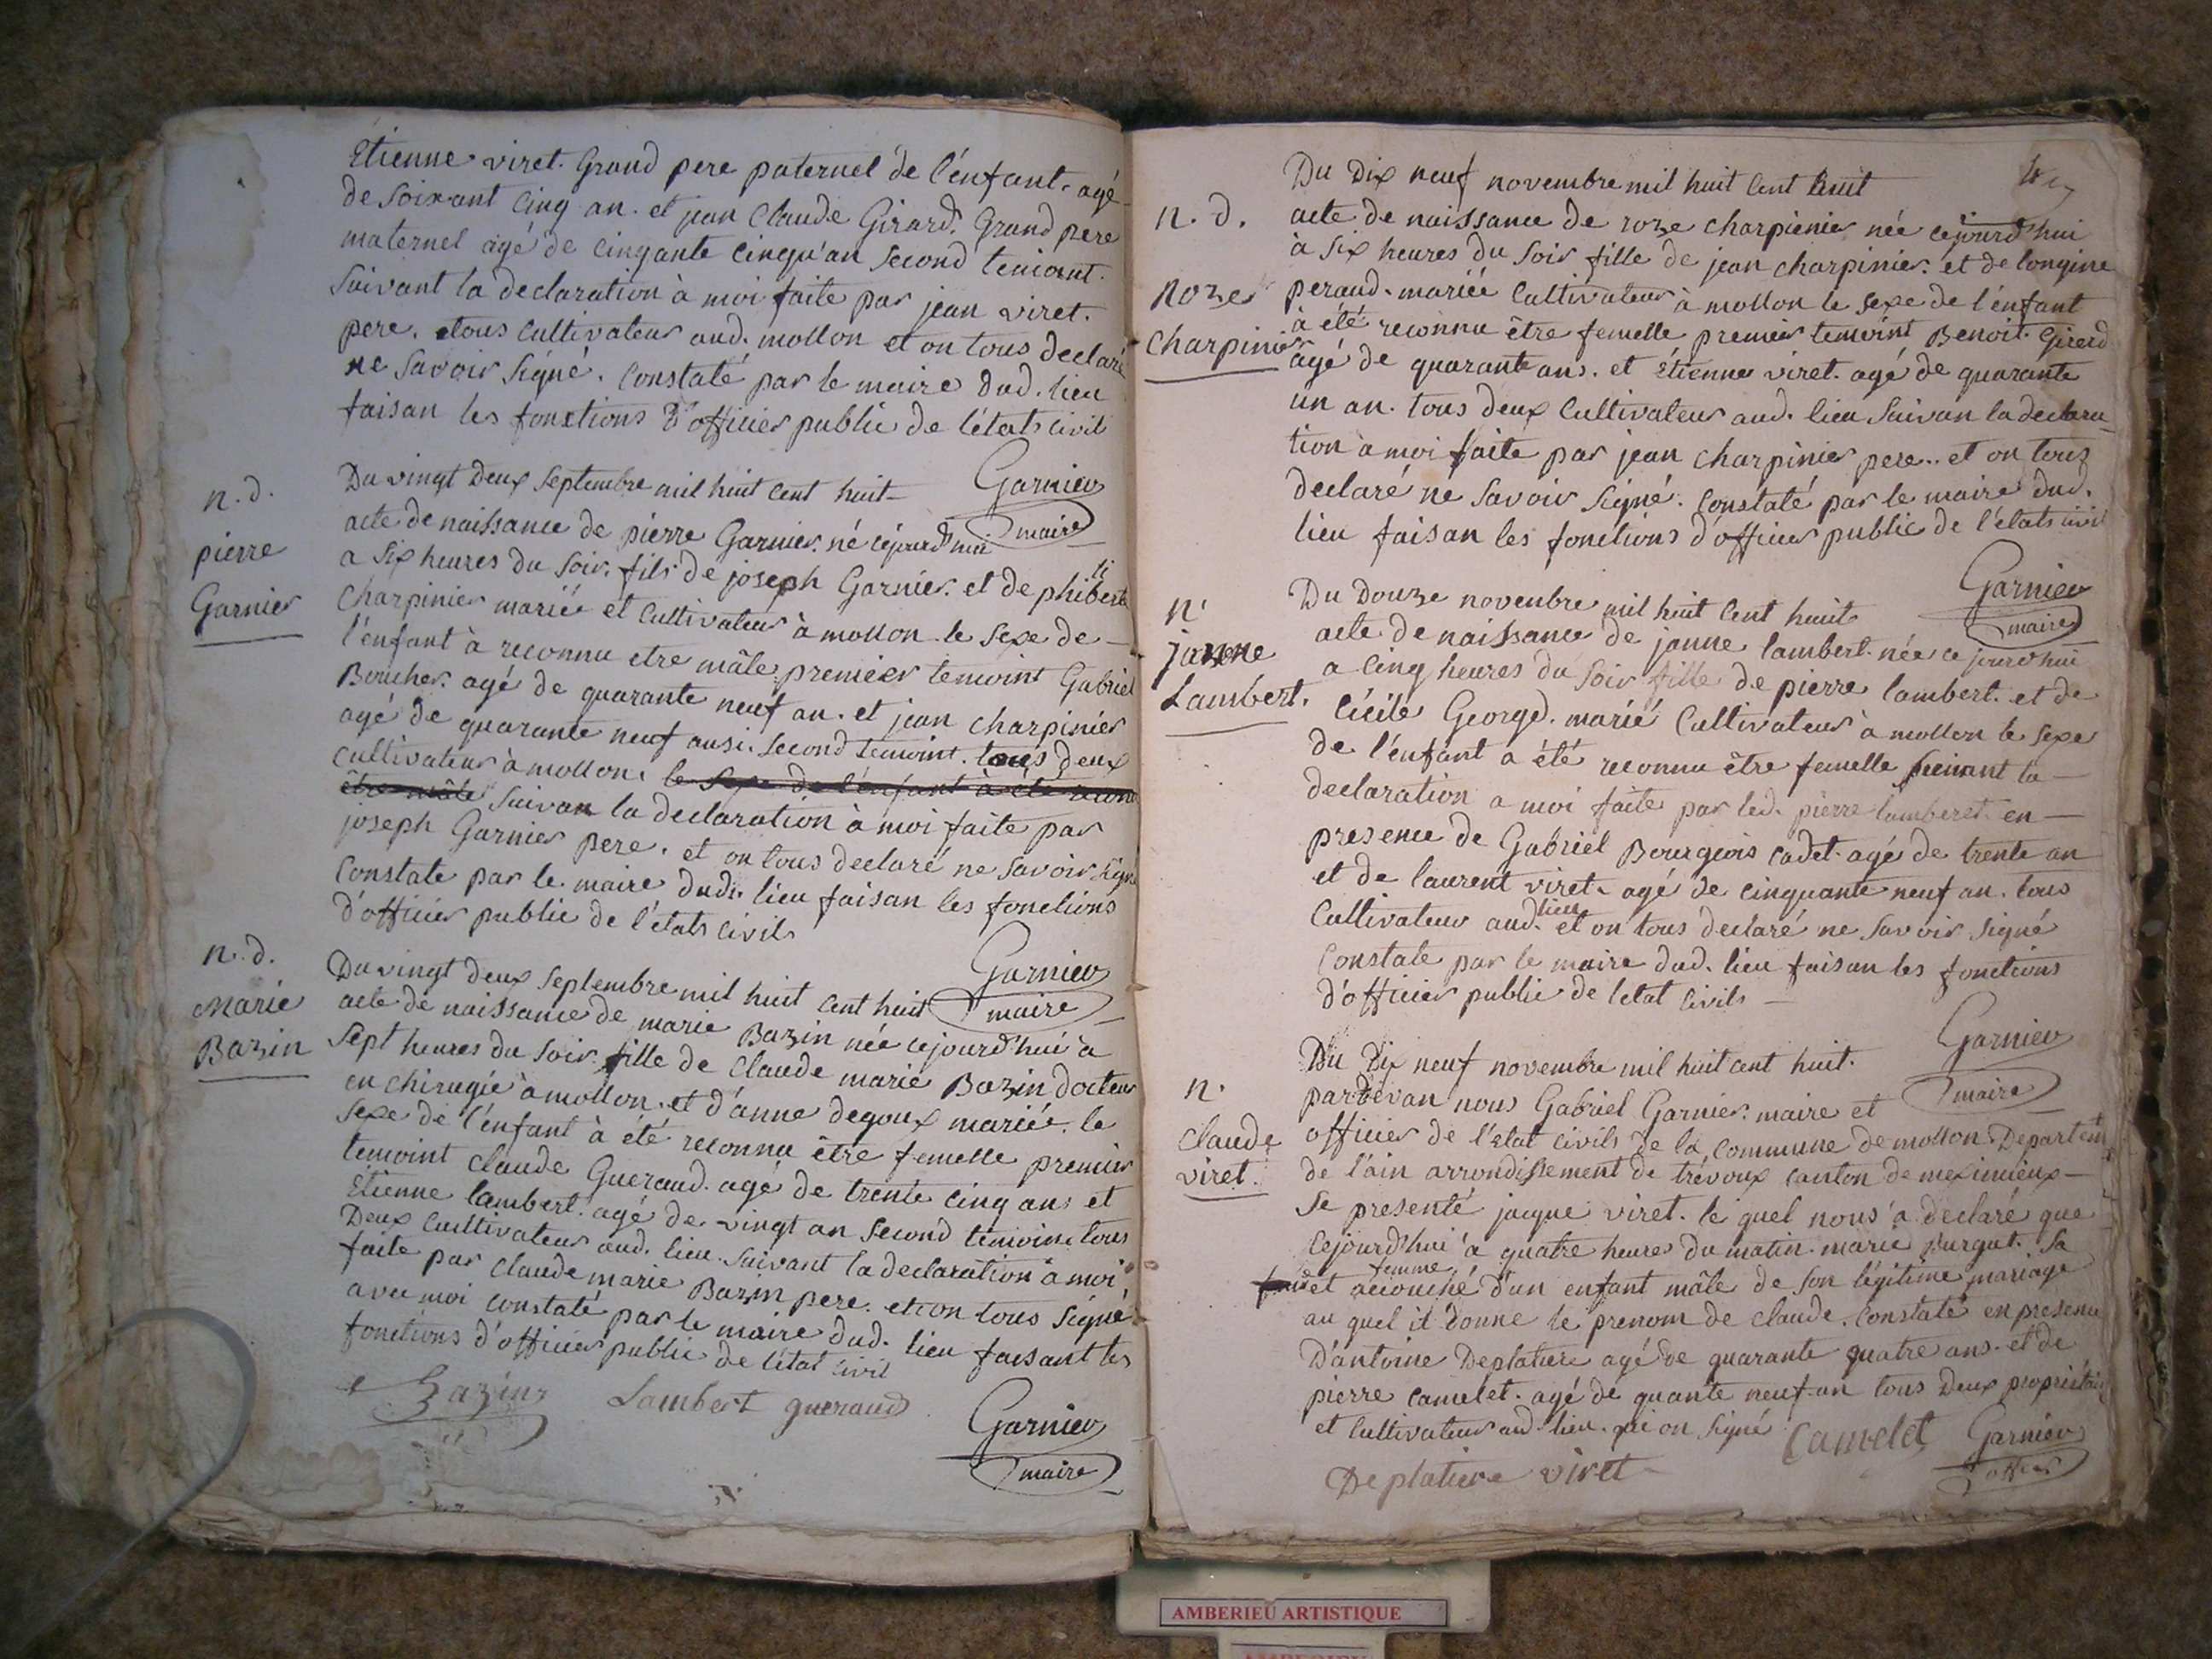 Etienne viret. Grand pere paternel de l'enfant. agé
de soixant cinq an. et jean Claude Girard. Grand pere
maternel agé de cinqante cinqu'an second temoint.
Suivant la declaration à moi faite par jean viret.
pere. tous cultivateur aud. mollon et on tous declaré
ne savoir signé. Constaté par le maire dud. lieu
faisan les fonctions d'officier public de l'états civil
Garnier
maire
n. d.
pierre
Garnier
Du vingt deux septembre mil huit cent huit
acte de naissance de pierre Garnier. né cejourd'hui
a six heures du soir. fils de joseph Garnier. et de philiberte
charpinier mariée et cultivateur à mollon le sexe de
l'enfant à reconnu etre mâle. premier temoint Gabriel
Boucher. agé de quarante neuf an. et jean charpinier
agé de quarante neuf ausi. second temoint. tous deux
cultivateur à mollon. le sexe de l'enfant à été reconu
être mâle suivan la declaration à moi faite par
joseph Garnier pere. et on tous declaré ne savoir signé
Constate par le maire dud. lieu faisan les fonctions
d'officier public de l'états civils
Garnier
maire
n. d.
Marie
Bazin
Du vingt deux septembre mil huit cent huit
acte de naissance de marie Bazin née cejourd'hui à
sept heures du soir. fille de Claude marie Bazin docteur
en chirugie à mollon. et d'anne degoux mariée. le
sexe de l'enfant à été reconnu être femelle premier
temoint claude Gueraud. agé de trente cinq ans et
Etienne lambert. agé de vingt an second temoint tous
Deux cultivateur aud. lieu. suivant la declaration à moi
faite par claude marie Bazin pere. et on tous signé
avec moi constaté par le maire dud. lieu faisant les
fonctions d'officier public de l'état civil
Bazin Lambert gueraud
Garnier
maire
n. d.
Roze
Charpinier
Du Dix neuf novembre mil huit cent huit
acte de naissance de roze charpienier née cejourd'hui
à six heures du soir fille de jean charpinier. et de longine
peraud. mariée cultivateur à mollon le sexe de l'enfant
à été reconnu être femelle premier temoint Benoit. Girerd
agé de quarante ans. et étienne viret. agé de quarante
un an. tous deux cultivateur aud. lieu suivan la declara
tion à moi faite par jean charpinier pere.. et on tous
declaré ne savoir signé. constaté par le maire dud.
lieu faisan les fonctions d'officier public de l'états civil
Garnier
maire
n.
janne
Lambert.
Du Douze novenbre mil huit cent huit
acte de naissance de janne lambert. née ce jourd'hui
a cinq heures du soir fille de pierre lambert. et de
Cécile George. marié cultivateur à mollon le sexe
de l'enfant a été reconnu être femelle suivant la
declaration a moi faite par led. pierre lamberet en
presence de Gabriel Bourgeois cadet. agé de trente an
et de laurent viret. agé de cinquante neuf an. tous
cultivateur aud. lieu et on tous declaré ne savoir signé
Constate par le maire dud. lieu faisan les fonctions
d'officier public de letat civils
Garnier
maire
n.
claude
viret.
Du Dix neuf novembre mil huit cent huit.
pardevan nous Gabriel Garnier. maire et
officier de l'etat civils de la commune de mollon Departem
de l'ain arrondissement de trévoux canton de meximieux
Se presenté jacque viret. le quel nous a declaré que
cejourd'hui à quatre heures du matin. marie purgat. sa
femme
et acouché d'un enfant mâle de son légitime mariage
au quel it donne le prenom de claude. Constaté en presence
D'antoine Deplatiere agé de quarante quatre ans. et de
pierre camelet. agé de quante neuf. an tous Deux proprietair
et cultivateur aud lieu. qui on signé
Camelet Garnier
Deplatiere viret
AMBERIEU ARTISTIQUE